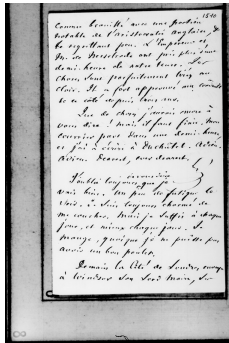 1540
comme brouillé avec une portion
notable de l'aristocratie anglaise, &
le regrettant peu. L'Empereur et
M. de Nesselrode ont pris plus d'une
demi-heure de notre tems. Les
choses sont parfaitement
clair. Il a fort approuvé ma conduite
depuis trois ans.
Que de choses j'aurais encore à
vous dire ! mais il faut finir, mon
courrier part dans une demi-heure
et j'ai à écrire à Duchâtel. Adieu,
Adieu. Dearest, ever dearest.
J'oublie toujours que je
vais bien. Un peu de fatigue le
soir. Je suis toujours charmé de
me coucher. Mais je suffis à chaque
jour, et mieux chaque jour. Je
mange, quoique je ne puisse pas
avoir un bon poulet.
Demain la Cité de Londres, envoye
à Windsor son Lord Maire, ses